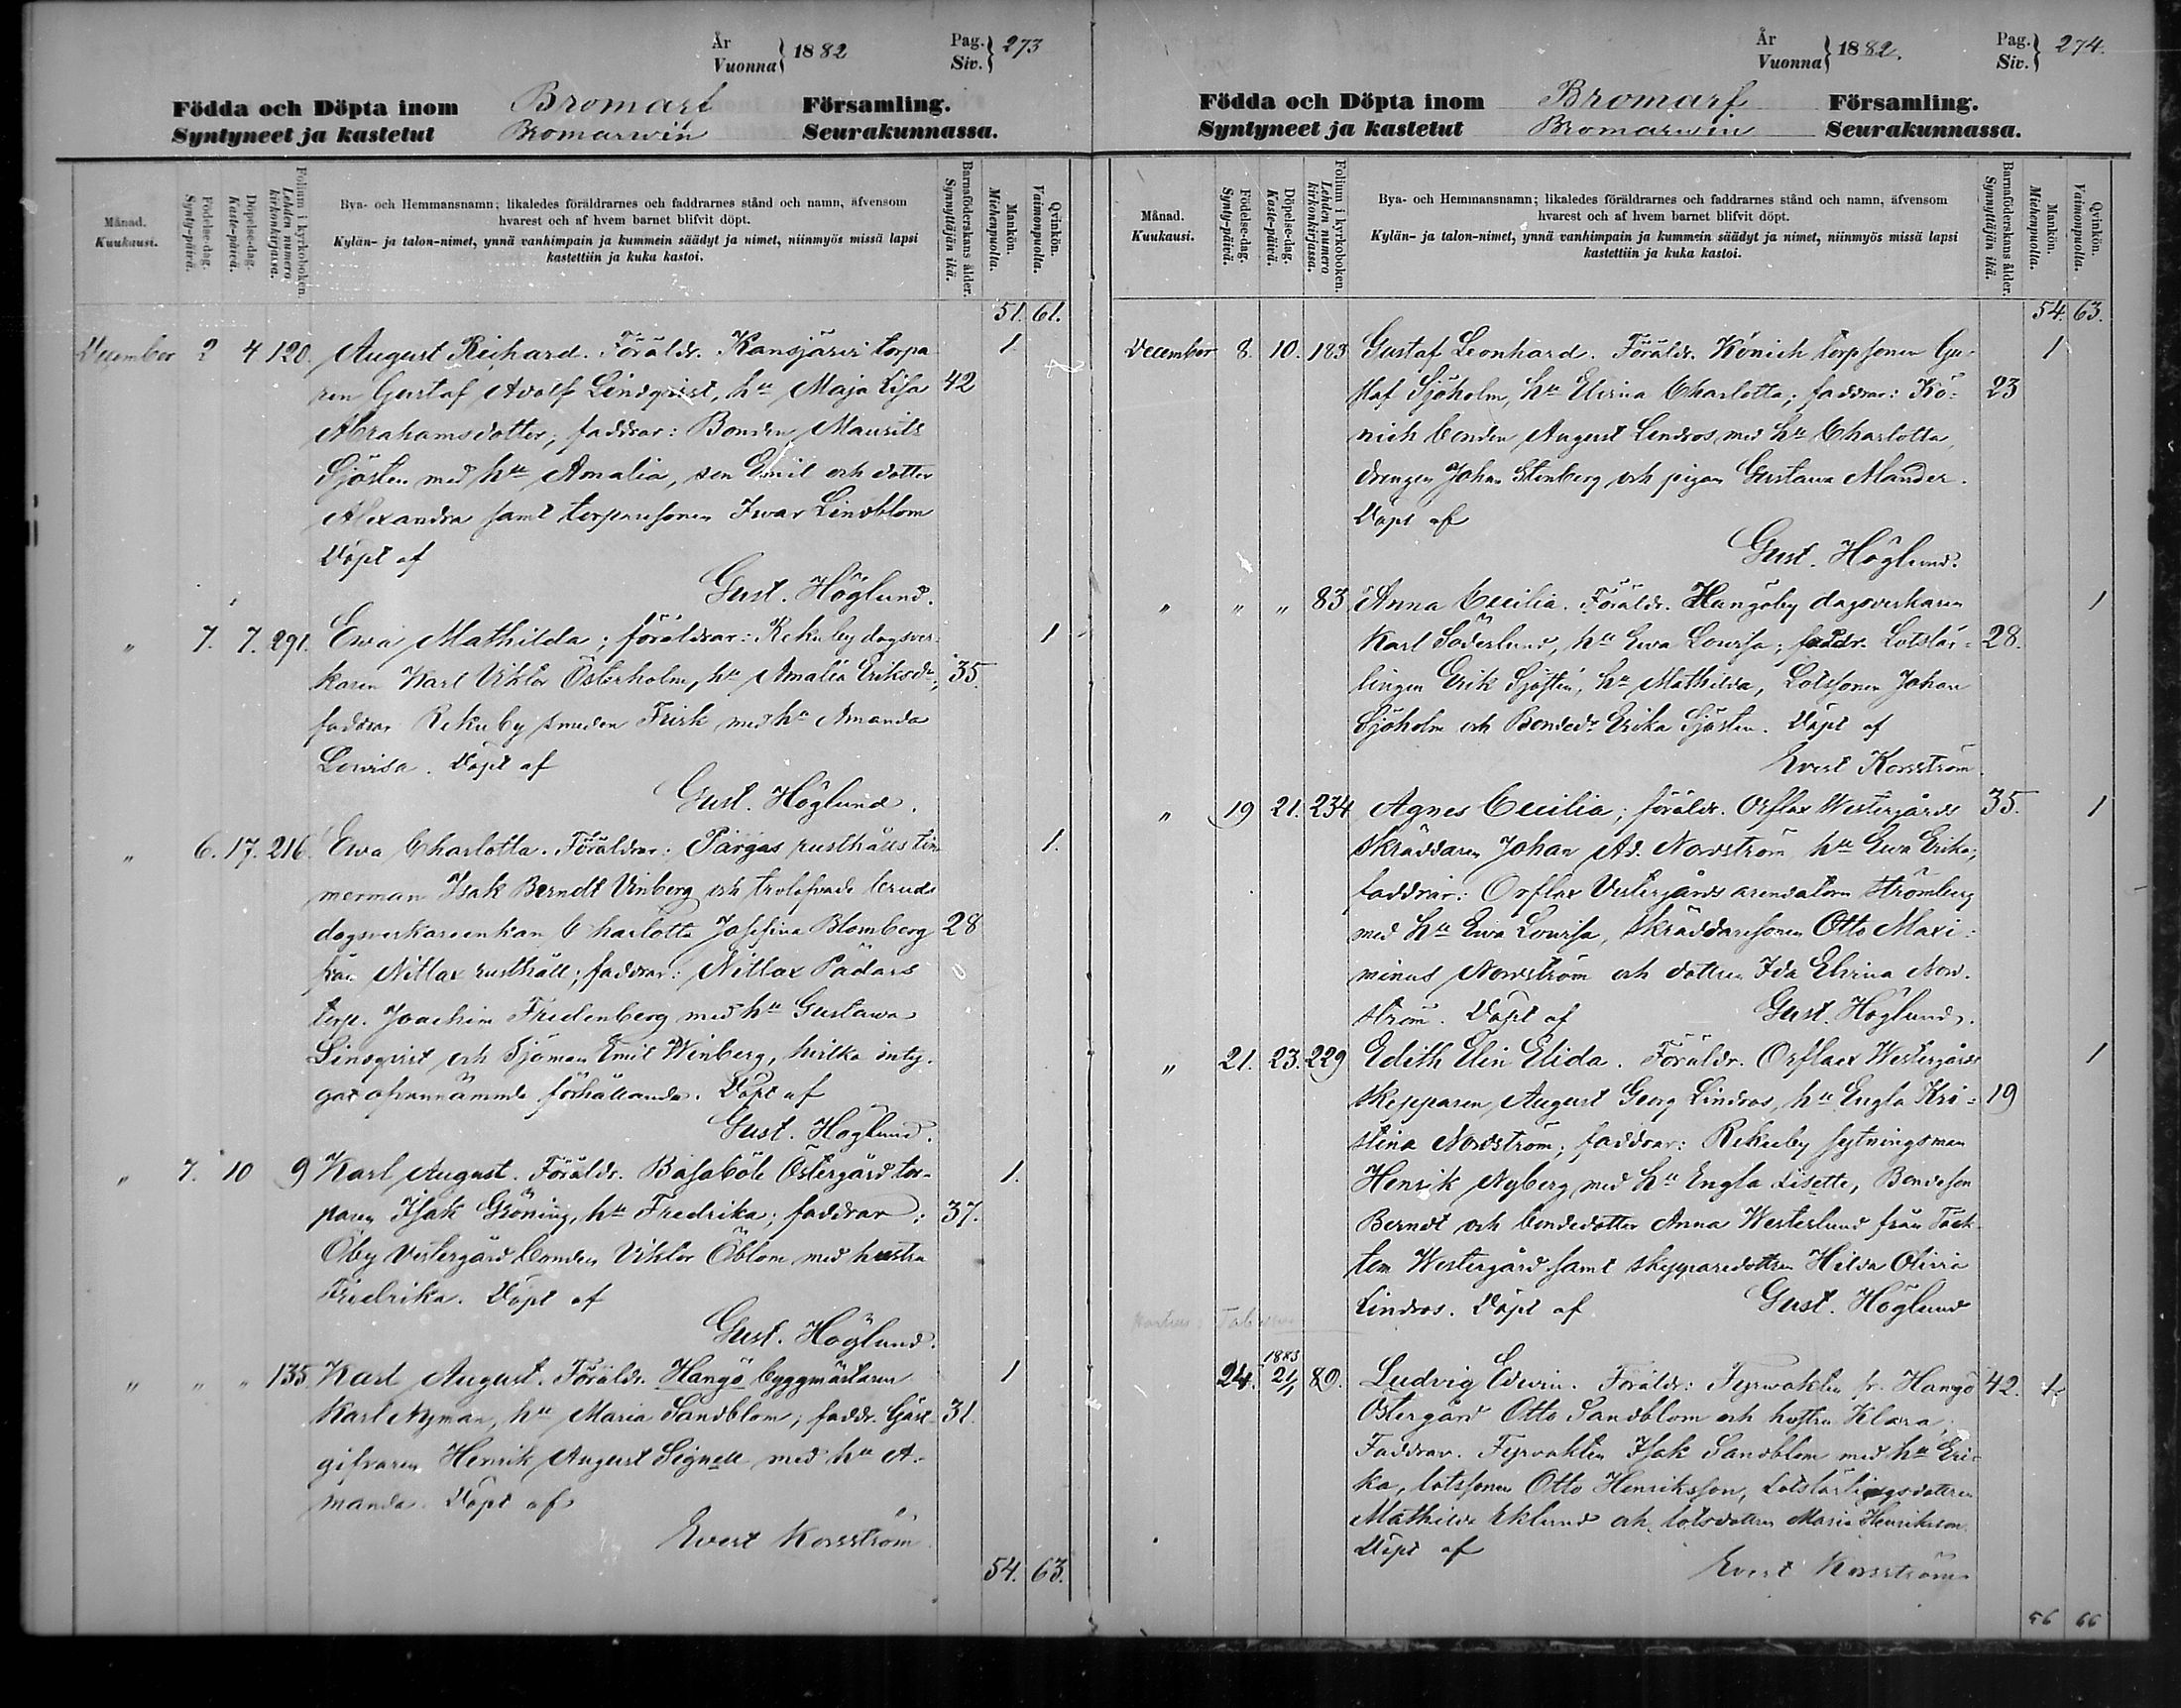 År
Vuonna } 1882
Pag.
Siv. } 273
Födda och Döpta inom Bromarf Församling.
Syntyneet ja kastetut Bromarwin Seurakunnassa.
Månad.
Kuukausi.
Födelse-dag.
Synty-päivä.
Döpelse-dag.
Kaste-päivä.
Folium i kyrkoboken.
Lehden numero kirkonkirjassa.
Bya- och Hemmansnamn; likaledes föräldrarnes och faddrarnes stånd och namn, äfvensom
hvarest och af hvem barnet blifvit döpt.
Kylän- ja talon-nimet, ynnä vanhimpain ja kummein säädyt ja nimet, niinmyös missä lapsi
kastettiin ja kuka kastoi.
Barnaföderskans ålder.
Synnyttäjän ikä.
Mankön.
Miehenpuolia.
Qvinkön.
Vaimonpuolia.
51. 61.
December 2 4 120. August Reihard. Föräldr. Kansjärvi torpa- 1.
ren Gustaf Adolf Lindqvist, hu Maja Lisa 42
Abrahamsdotter; faddrar: Bonden Maurits
Sjösten med hu Amalia, son Emil och dotter
Alexandra samt torparesonen Ivar Lindblom
Döpt af
Gust. Höglund.
" 7. 7. 291. Ewa Mathilda; föräldrar: Rekuby dagsver- 1
karen Karl Viktor Österholm, hu Amalia Eriksdr, 35.
faddrar Rekuby smeden Frisk med hu Amanda
Lovisa. Döpt af
Gust. Höglund.
" 6. 17. 216. Ewa Charlotta. Föräldrar: Pargas rusthålls tim 1.
merman Isak Berndt Vinberg och trolofvade brud
dagsverkareenkan Charlotta Josefina Blomberg 28
från Nitlax rusthåll; faddrar: Nitlax Pädars
torp. Joachim Fredenberg med hu Gustawa
Lindqvist och Sjöman Emil Winberg, hvilka inty-
gat ofvannämnda förhållande. Döpt af
Gust. Höglund.
" 7. 10 9 Karl August. Föräldr. Basaböle Östergård tor- 1.
paren Isak Gröning, hu Fredrika; faddrar: 37.
Öby Vestergård bonden Viktor Öblom med hustru
Fredrika. Döpt af
Gust. Höglund.
" " " 135 Karl August. Föräldr. Hangö byggmästaren 1
Karl Nyman, hu Maria Sandblom; faddr. Gäst- 31.
gifvaren Henrik August Signell med hu A-
manda. Döpt af
Evert Korsström
54. 63.
År
Vuonna } 1882.
Pag.
Siv. } 274.
Födda och Döpta inom Bromarf Församling.
Syntyneet ja kastetut Bromarwin Seurakunnassa.
Månad.
Kuukausi.
Födelse-dag.
Synty-päivä.
Döpelse-dag.
Kaste-päivä.
Folium i kyrkoboken.
Lehden numero kirkonkirjassa.
Bya- och Hemmansnamn; likaledes föräldrarnes och faddrarnes stånd och namn, äfvensom
hvarest och af hvem barnet blifvit döpt.
Kylän- ja talon-nimet, ynnä vanhimpain ja kummein säädyt ja nimet, niinmyös missä lapsi
kastettiin ja kuka kastoi.
Barnaföderskans ålder.
Synnyttäjän ikä.
Mankön.
Miehenpuolia.
Qvinkön.
Vaimonpuolia.
54. 63.
December 8. 10. 183 Gustaf Leonhard. Föräldr. Könich torpsonen Gu- 1
staf Sjöholm, hu Elvina Charlotta; faddrar: Kö- 23
nich bonden August Lindros med hu Charlotta,
drengen Johan Stenberg och pigan Gustawa Mander.
Döpt af
Gust. Höglund.
" " " 83 Anna Cecilia. Föräldr. Hangöby dagsverkaren 1
Karl Söderlund, hu Ewa Lovisa; faddr. Lotslär- 28.
lingen Erik Sjöstén, hu Mathilda, Lotssonen Johan
Sjöholm och Bonded. Erika Sjösten. Döpt af
Evert Korsström.
" 19 21. 234 Agnes Cecilia; föräldr. Orflax Westergårds 35. 1
Skräddaren Johan Ad. Nordström, hu Ewa Erika;
faddrar: Orflax Vestergårds arendatorn Strömberg
med hu Ewa Lovisa, Skräddaresonen Otto Maxi-
minus Nordström och dottren Ida Elvina Nord-
ström. Döpt af Gust. Höglund.
" 21. 23. 229 Edith Elin Elida. Föräldr. Orflax Westergårds 1
Skepparen August Georg Lindros, hu Engla Kri- 19
stina Nordström; faddrar: Rekuby sytningsman
Henrik Nyberg med hu Engla Lisette, Bondeson
Berndt och bondedotter Anna Westerlund från Täck-
tom Westergård samt skepparedottren Hilda Olivia
Lindros. Döpt af Gust. Höglund
24. 1883 21/1 80. Ludvig Edvin. Föräldr: Fyrvaktn fr. Hangö 42. 1.
Östergård Otto Sandblom och hustru Klara,
Faddrar. Fyrvaktn Isak Sandblom med hu Eri-
ka, lotssonen Otto Henriksson, Lotslärlingsdottren
Mathilda Eklund och lotsdottren Maria Henriksson.
Döpt af
Evert Korsström
56 66